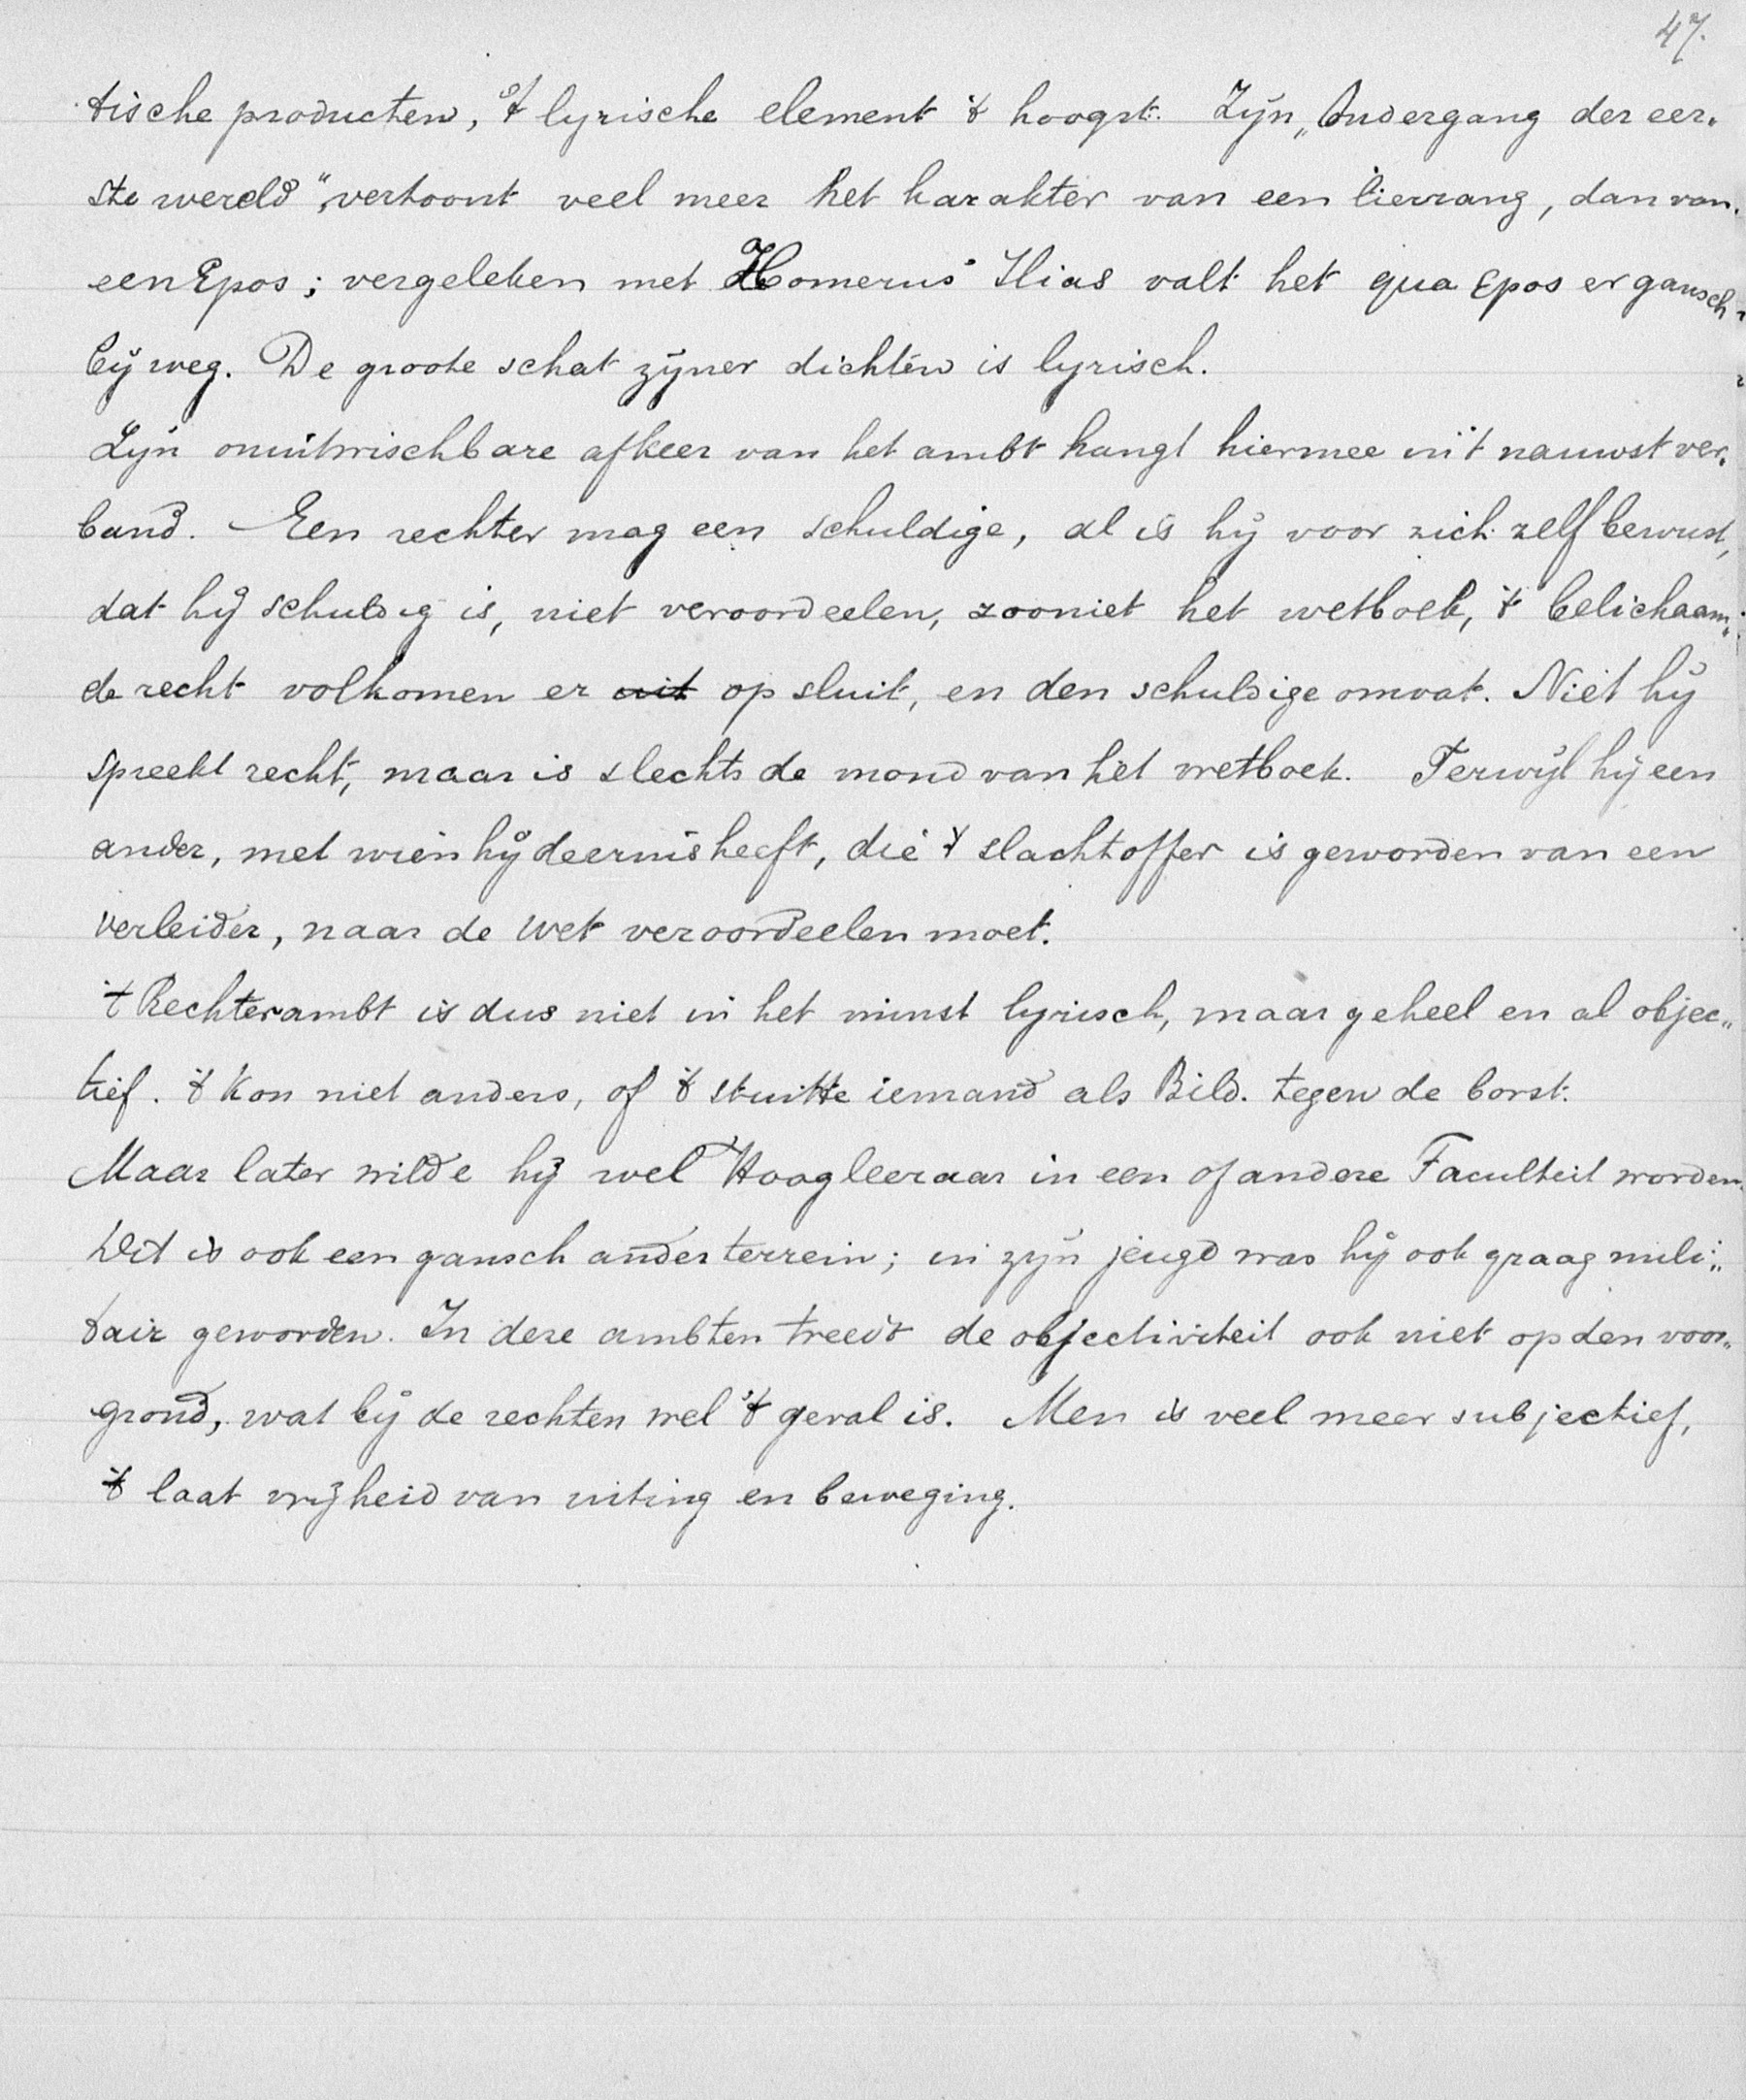 47.
tische producten, 't lyrische element 't hoogst. Zijn „Ondergang der eer-
ste wereld", vertoont veel meer het karakter van een lierzang, dan van
een Epos; vergeleken met Homerus' Ilias valt het qua Epos er gansch
bij weg. De groote schat zijner dichten is lyrisch.
Zijn onuitwischbare afkeer van het ambt hangt hiermee in 't nauwst ver-
band. Een rechter mag een schuldige, al is hij voor zich zelf bewust,
dat hij schuldig is, niet veroordeelen, zooniet het wetboek, 't belichaam-
de recht volkomen er uit op sluit, en den schuldige omvat. Niet hij
spreekt recht, maar is slechts de mond van het wetboek. Terwijl hij een
ander, met wien hij deernis heeft, die 't slachtoffer is geworden van een
verleider, naar de wet veroordeelen moet.
't Rechterambt is dus niet in het minst lyrisch, maar geheel en al objec„
tief. 't Kon niet anders, of 't stuitte iemand als Bild. tegen de borst.
Maar later wilde hij wel Hoogleeraar in een of andere Faculteit worden.
Dit is ook een gansch ander terrein; in zijn jeugd was hij ook graag mili„
tair geworden. In deze ambten treedt de objectiviteit ook niet op den voor„
grond, wat bij de rechten wel 't geval is. Men is veel meer subjectief,
't laat vrijheid van uiting en beweging.